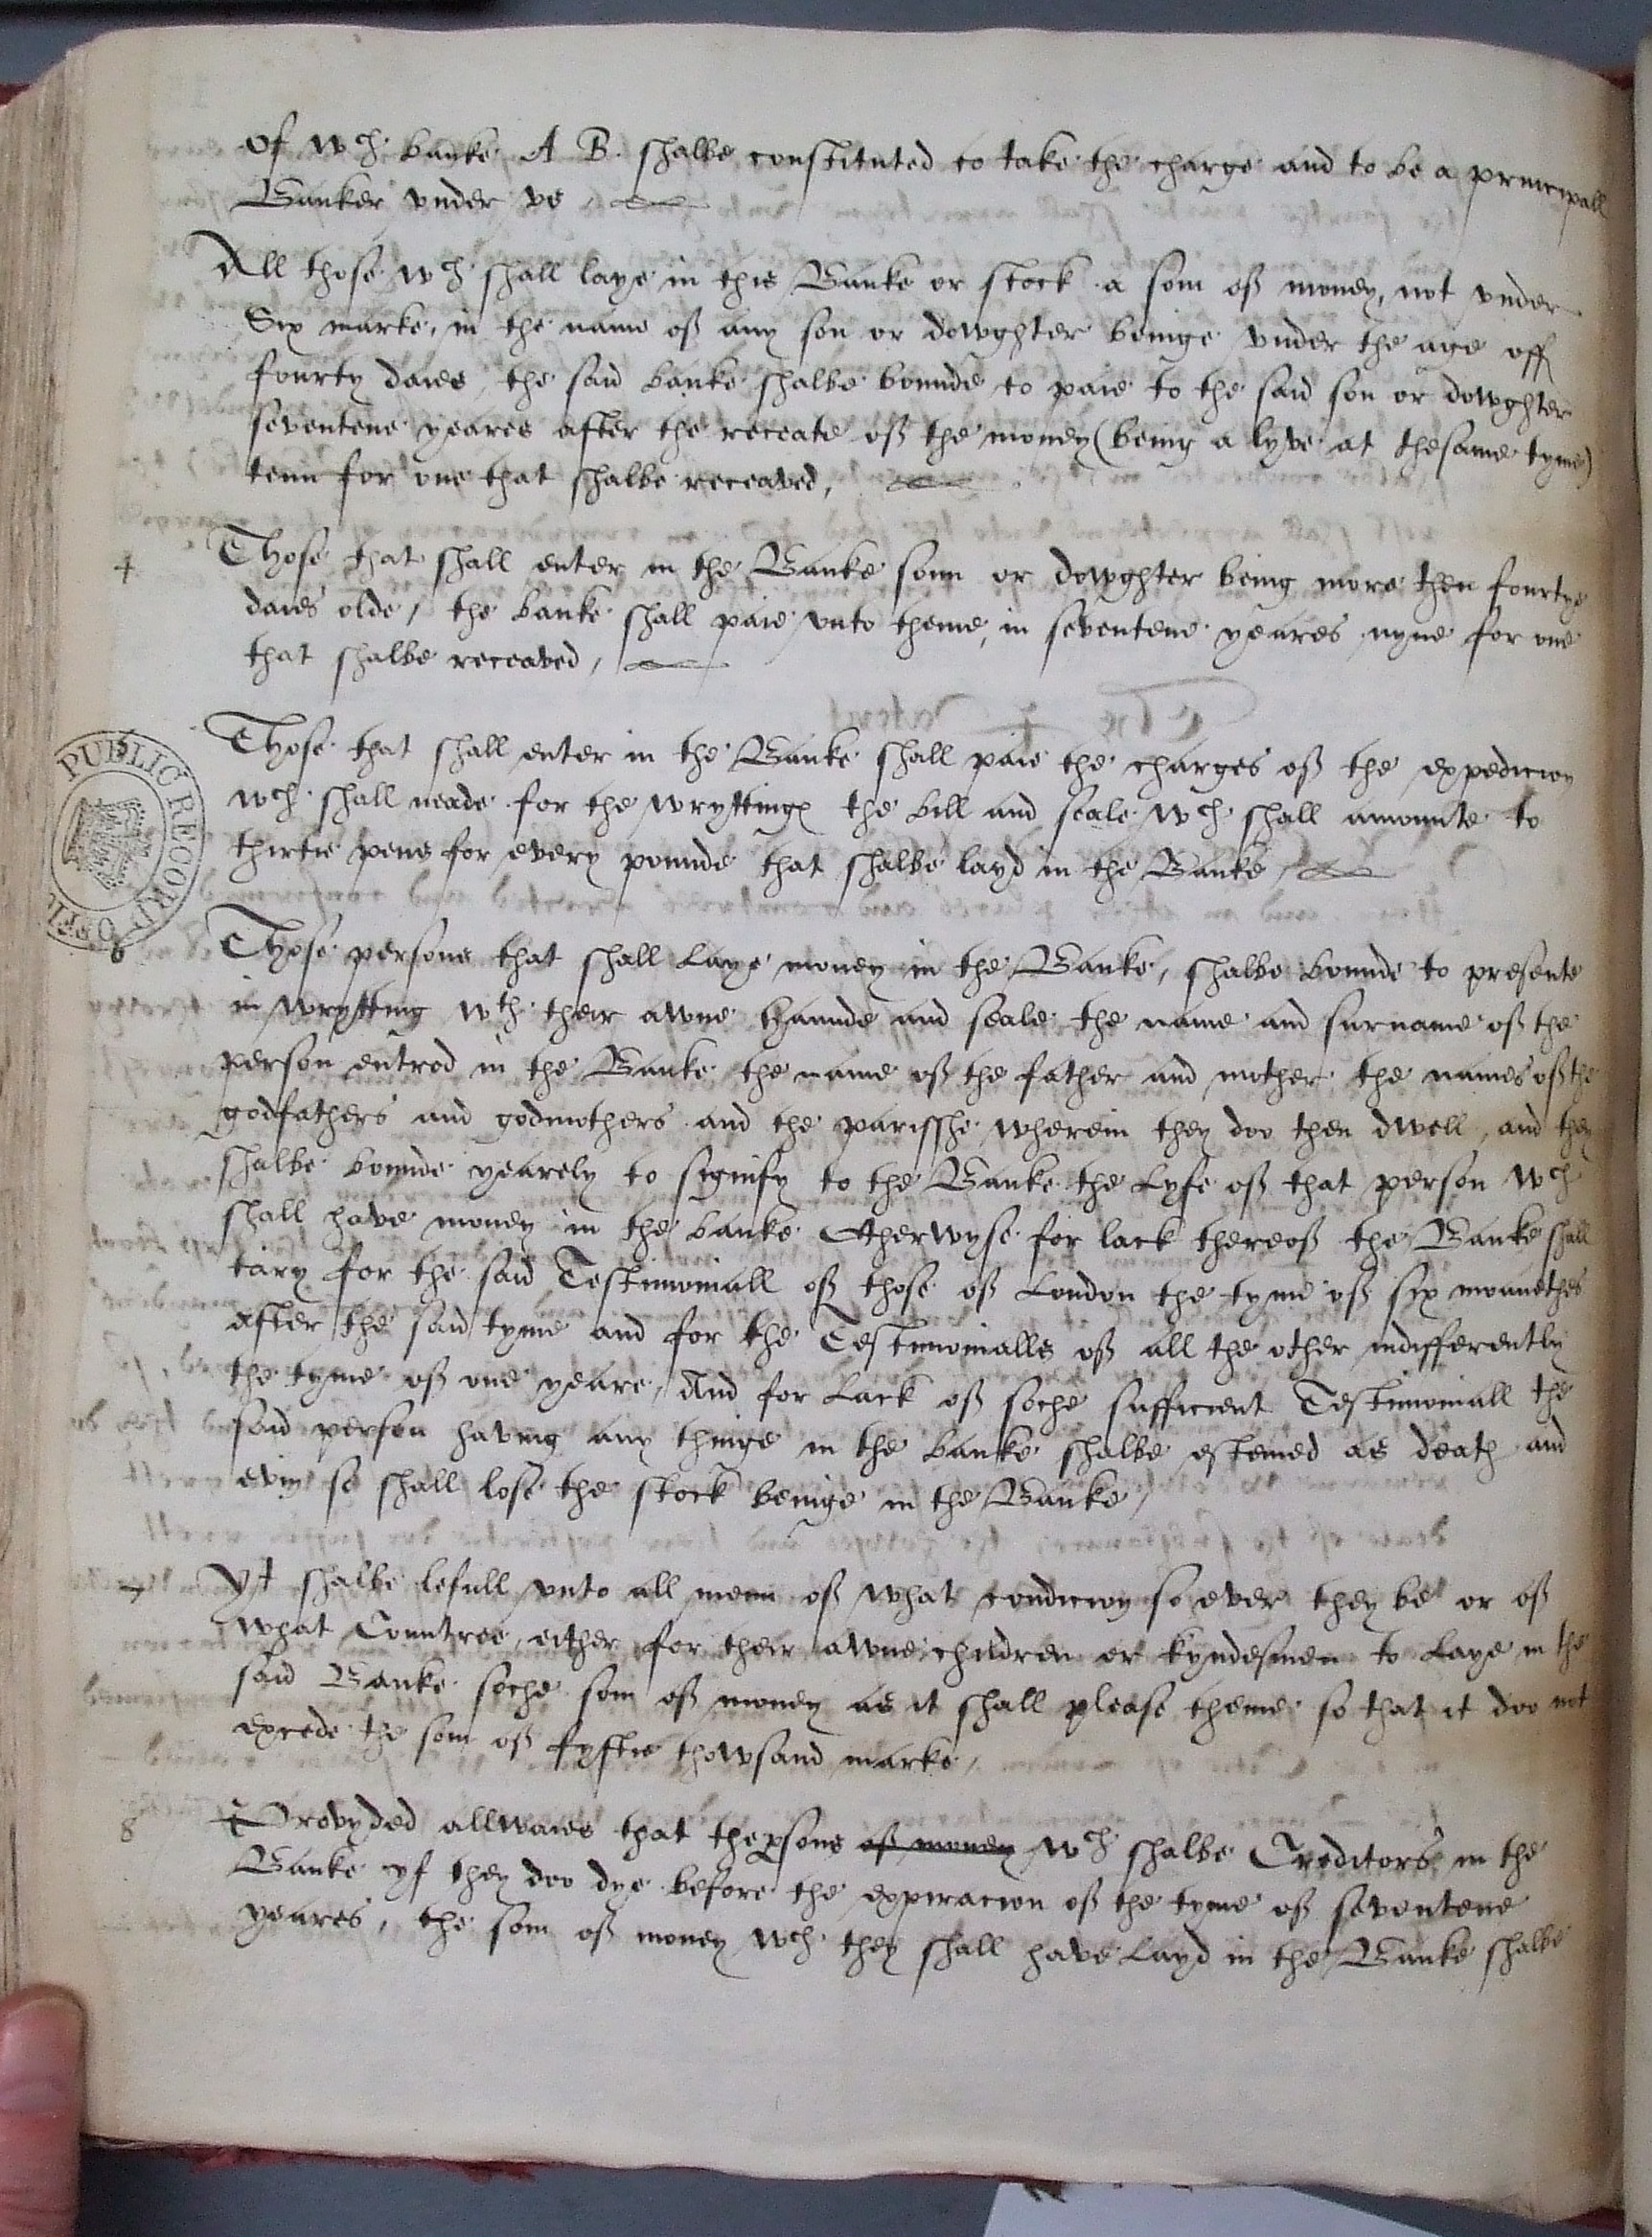 of wch banke A B. shalbe constituted to take the charge and to be a principall
Banker vnder vs
All those wch shall laye in this Banke or stock a som off money, not vnder
Six marke, in the name off any son or dowghter beinge vnder the age off
fourty daies, the said banke shalbe bounde to paie to the said son or dowghter
seventene yeares after the receate off the money (being a lyve at thesame tyme)
tenn for one that shalbe receaved,
4 Those that shall enter in the Banke sonn or dowghter being more then fourtye
daies olde, the banke shall paie vnto theme, in seventene yeares nyne for one
that shalbe receaved,
5 Those that shall enter in the Banke shall paie the charges off the expedicion
wch shall neade for the wryttinge the bill and seale wch shall amounte to
thirtie pens for every pounde that shalbe layd in the Banke,
PUBLIC RECORD OFFICE
6 Those persons that shall laye money in the Banke, shalbe bounde to presente
in wrytting wth their awne hannde and seale the name and surname off the
person entred in the Banke the name off the father and mother the names off the
godfathers and godmothers and the parisshe wherein they doo then dwell, and they
shalbe bounde yearely to signify to the Banke the lyfe off that person wch
shall have money in the banke Otherwyse for lack thereoff the Banke shall
tary for the said Testimoniall off those off London the tyme off six monnethes
after the said tyme and for the Testimonialls off all the other indifferently
the tyme off one yeare, And for lack off soche sufficient Testimoniall the
said person having any thinge in the banke shalbe estemed as death and
evin so shall lose the stock beinge in the Banke,
7 Yt shalbe lefull vnto all menn off what condicion so ever they be or off
what Countree, either for their awne children or kyndesmen to laye in the
said Banke soche som off money as it shall please theme so that it doo not
excede the som off fyftie thowsand marke,
8 Provyded allwaies that thepsons off money wch shalbe Creditors in the
Banke yf they doo dye before the expiracion off the tyme off seventene
yeares, the som off money wch they shall have layd in the Banke shalbe